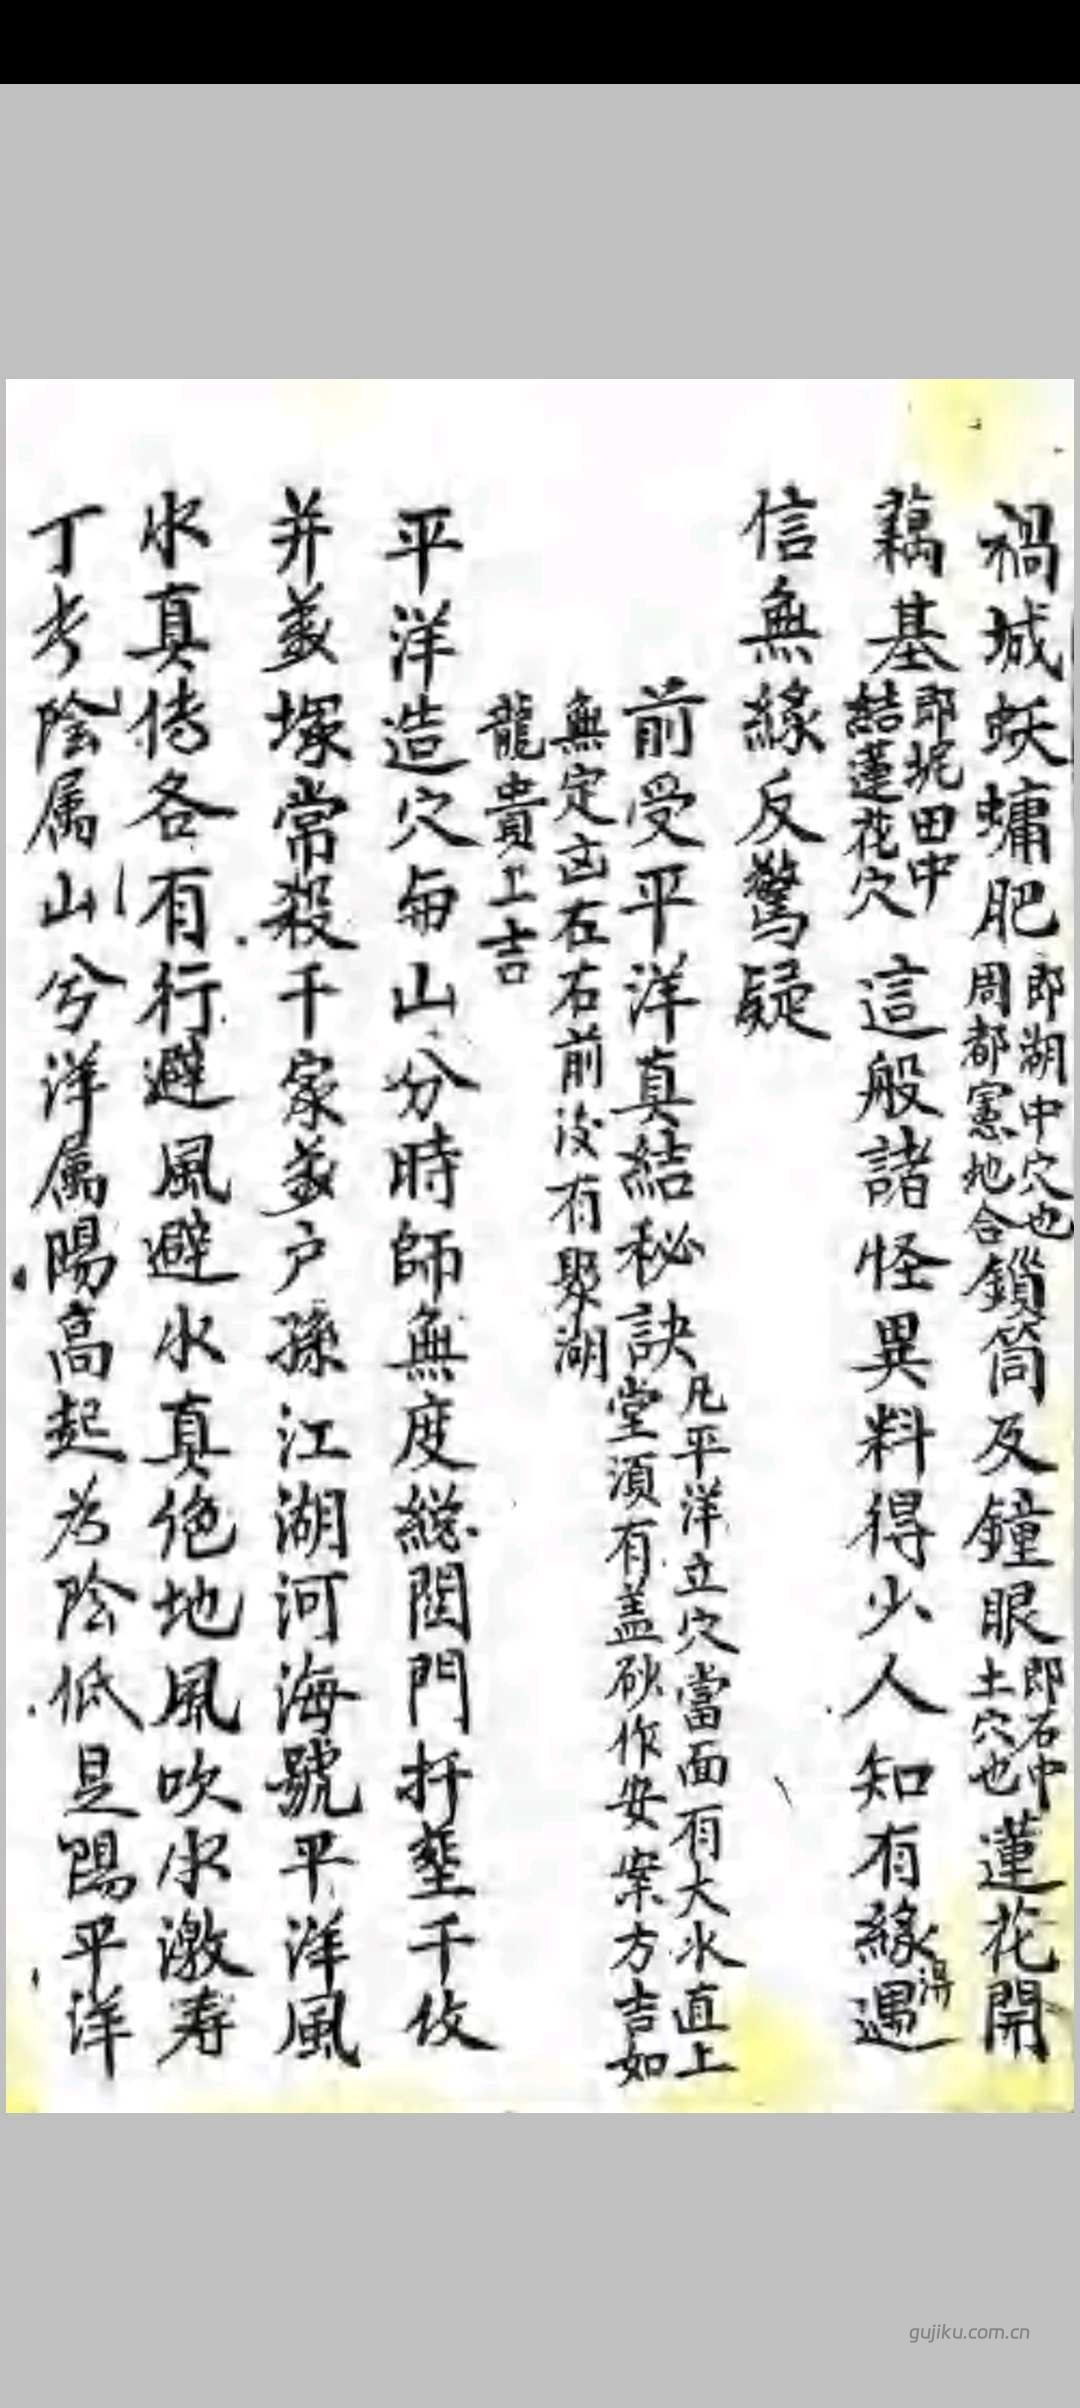 禍城蚨蟰肥即湖中穴也周都憲地合鎖筒及鐘眼即石中土穴也蓮花開
藕基即坭田中結蓮花穴這般諸怪異料得少人知有緣得遇
信無緣反驚疑
前受平洋真結秘訣凡平洋立穴當面有大水直上堂須有盖砂作安案方吉如
無定凶左右前後有聚湖
龍貴上吉
平洋造穴每山分時師無度総閗門扦塟千伩
并塟塚常殺千家塟户孫江湖河海號平洋風
水真传各有行避風避水真绝地風吹水激寿
丁考陰属山兮洋属陽高起为陰低是陽平洋
gujiku.com.cn